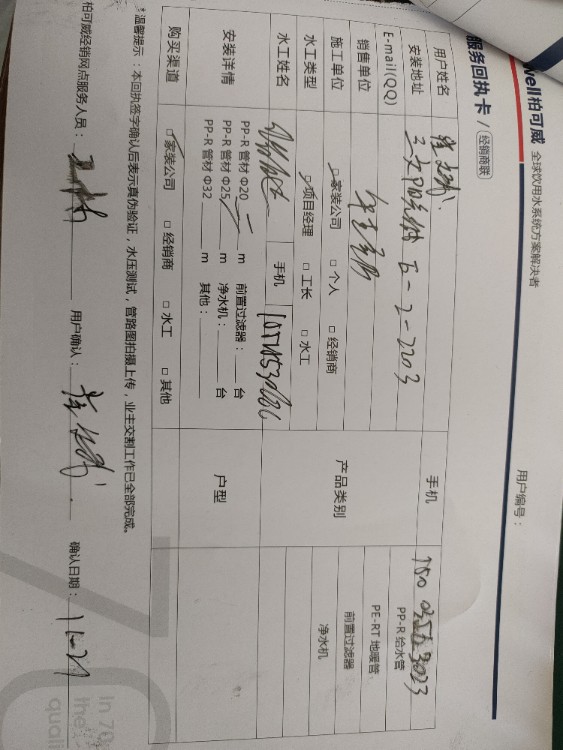 well柏可威 全球饮用水系统方案解决者
服务回执卡 / 经销商联
用户编号：
用户姓名
手机 150 0356 3023
安装地址 5-2-2203
E-mail(QQ)
销售单位
产品类别
PP-R 给水管
PE-RT 地暖管
前置过滤器
净水机
施工单位 家装公司 □ 个人 □ 经销商
水工类型 项目经理 □ 工长 □ 水工
水工姓名
手机
安装详情
PP-R 管材 Φ20 m 前置过滤器： 台
PP-R 管材 Φ25 m 净水机： 台
PP-R 管材 Φ32 m 其他：
户型
购买渠道 家装公司 □ 经销商 □ 水工 □ 其他
*温馨提示：本回执签字确认后表示真伪验证，水压测试，管路图拍摄上传，业主交割工作已全部完成。
柏可威经销网点服务人员：
用户确认：
确认日期： 11-27
In 70
the
quali